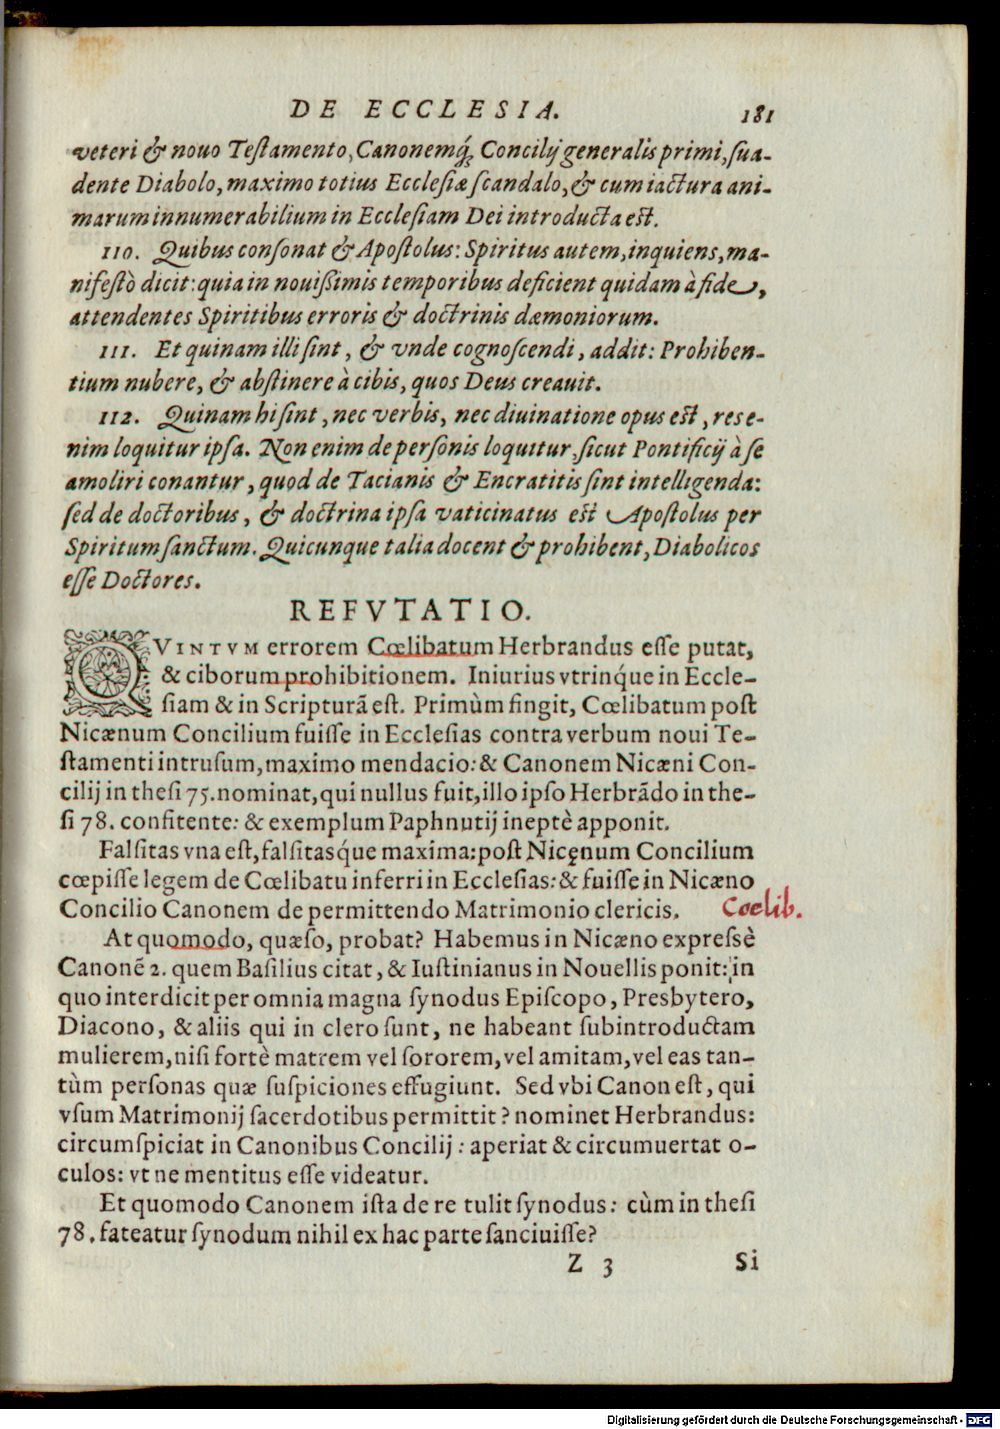 DE ECCLESIA. 181
veteri & nouo Testamento, Canonemq́; Concilij generalis primi, sua-
dente Diabolo, maximo totius Ecclesiæ scandalo, & cum iactura ani-
marum innumerabilium in Ecclesiam Dei introducta est.
110. Quibus consonat & Apostolus: Spiritus autem, inquiens, ma-
nifestò dicit: quia in nouissimis temporibus deficient quidam à fide,
attendentes Spiritibus erroris & doctrinis dæmoniorum.
111. Et quinam illi sint, & vnde cognoscendi, addit: Prohiben-
tium nubere, & abstinere à cibis, quos Deus creauit.
112. Quinam hi sint, nec verbis, nec diuinatione opus est, res e-
nim loquitur ipsa. Non enim de personis loquitur, sicut Pontificij à se
amoliri conantur, quod de Tacianis & Encratitis sint intelligenda:
sed de doctoribus, & doctrina ipsa vaticinatus est Apostolus per
Spiritum sanctum. Quicunque talia docent & prohibent, Diabolicos
esse Doctores.
REFVTATIO.
QVINTVM errorem Cœlibatum Herbrandus esse putat,
& ciborum prohibitionem. Iniurius vtrinq́ue in Eccle-
siam & in Scripturã est. Primùm fingit, Cœlibatum post
Nicænum Concilium fuisse in Ecclesias contra verbum noui Te-
stamenti intrusum, maximo mendacio: & Canonem Nicæni Con-
cilij in thesi 75. nominat, qui nullus fuit, illo ipso Herbrãdo in the-
si 78. confitente: & exemplum Paphnutij ineptè apponit.
Falsitas vna est, falsitasq́ue maxima: post Nicęnum Concilium
cœpisse legem de Cœlibatu inferri in Ecclesias: & fuisse in Nicæno
Concilio Canonem de permittendo Matrimonio clericis.
Coelib.
At quomodo, quæso, probat? Habemus in Nicæno expressè
Canonẽ 2. quem Basilius citat, & Iustinianus in Nouellis ponit: in
quo interdicit per omnia magna synodus Episcopo, Presbytero,
Diacono, & aliis qui in clero sunt, ne habeant subintroductam
mulierem, nisi fortè matrem vel sororem, vel amitam, vel eas tan-
tùm personas quæ suspiciones effugiunt. Sed vbi Canon est, qui
vsum Matrimonij sacerdotibus permittit? nominet Herbrandus:
circumspiciat in Canonibus Concilij: aperiat & circumuertat o-
culos: vt ne mentitus esse videatur.
Et quomodo Canonem ista de re tulit synodus: cùm in thesi
78. fateatur synodum nihil ex hac parte sanciuisse?
Z 3 Si
Digitalisierung gefördert durch die Deutsche Forschungsgemeinschaft - DFG